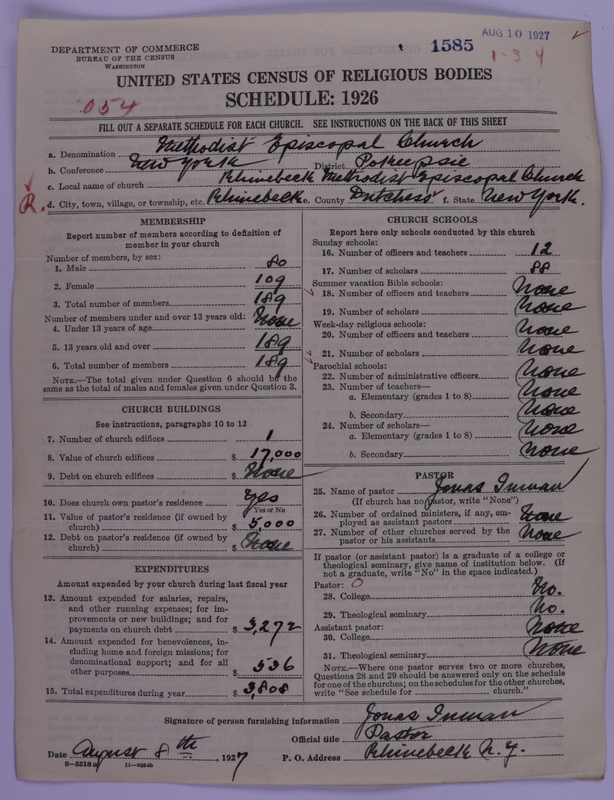 AUG 10 1927
DEPARTMENT OF COMMERCE
BUREAU OF THE CENSUS
WASHINGTON
1585
1-3-4
UNITED STATES CENSUS OF RELIGIOUS BODIES
.054
SCHEDULE: 1926
FILL OUT A SEPARATE SCHEDULE FOR EACH CHURCH. SEE INSTRUCTIONS ON THE BACK OF THIS SHEET
a. Denomination Methodist Episcopal Church
b. Conference New York District Pokeepsie
c. Local name of church Rhinebeck Methodist Episcopal Church
R. d. City, town, village, or township, etc. Rhinebeck e. County Dutchess f. State New York.
MEMBERSHIP
Report number of members according to definition of
member in your church
Number of members, by sex:
1. Male 80
2. Female 109
3. Total number of members 189
Number of members under and over 13 years old:
4. Under 13 years of age None
5. 13 years old and over 189
6. Total number of members 189
NOTE.—The total given under Question 6 should be the
same as the total of males and females given under Question 3.
CHURCH BUILDINGS
See instructions, paragraphs 10 to 12
7. Number of church edifices 1
8. Value of church edifices $ 17,000
9. Debt on church edifices $ None
10. Does church own pastor's residence Yes
Yes or No
11. Value of pastor's residence (if owned by
church) $ 5,000
12. Debt on pastor's residence (if owned by
church) $ None
EXPENDITURES
Amount expended by your church during last fiscal year
13. Amount expended for salaries, repairs,
and other running expenses; for im-
provements or new buildings; and for
payments on church debt $ 3,272
14. Amount expended for benevolences, in-
cluding home and foreign missions; for
denominational support; and for all
other purposes $ 536
15. Total expenditures during year $ 3,808
CHURCH SCHOOLS
Report here only schools conducted by this church
Sunday schools:
16. Number of officers and teachers 12
17. Number of scholars 88
Summer vacation Bible schools:
18. Number of officers and teachers None
19. Number of scholars None
Week-day religious schools:
20. Number of officers and teachers None
21. Number of scholars None
Parochial schools:
22. Number of administrative officers None
23. Number of teachers—
a. Elementary (grades 1 to 8) None
b. Secondary None
24. Number of scholars—
a. Elementary (grades 1 to 8) None
b. Secondary None
PASTOR
25. Name of pastor Jonas Inman
(If church has no pastor, write "None")
26. Number of ordained ministers, if any, em-
ployed as assistant pastors None
27. Number of other churches served by the
pastor or his assistants None
If pastor (or assistant pastor) is a graduate of a college or
theological seminary, give name of institution below. (If
not a graduate, write "No" in the space indicated.)
Pastor: O
28. College No.
29. Theological seminary No.
Assistant pastor:
30. College None
31. Theological seminary None
NOTE.—Where one pastor serves two or more churches,
Questions 28 and 29 should be answered only on the schedule
for one of the churches; on the schedules for the other churches,
write "See schedule for church."
Signature of person furnishing information Jonas Inman
Official title Pastor
Date August 8th, 1927 P. O. Address Rhinebeck N.Y.
8—5518a 11—9554b